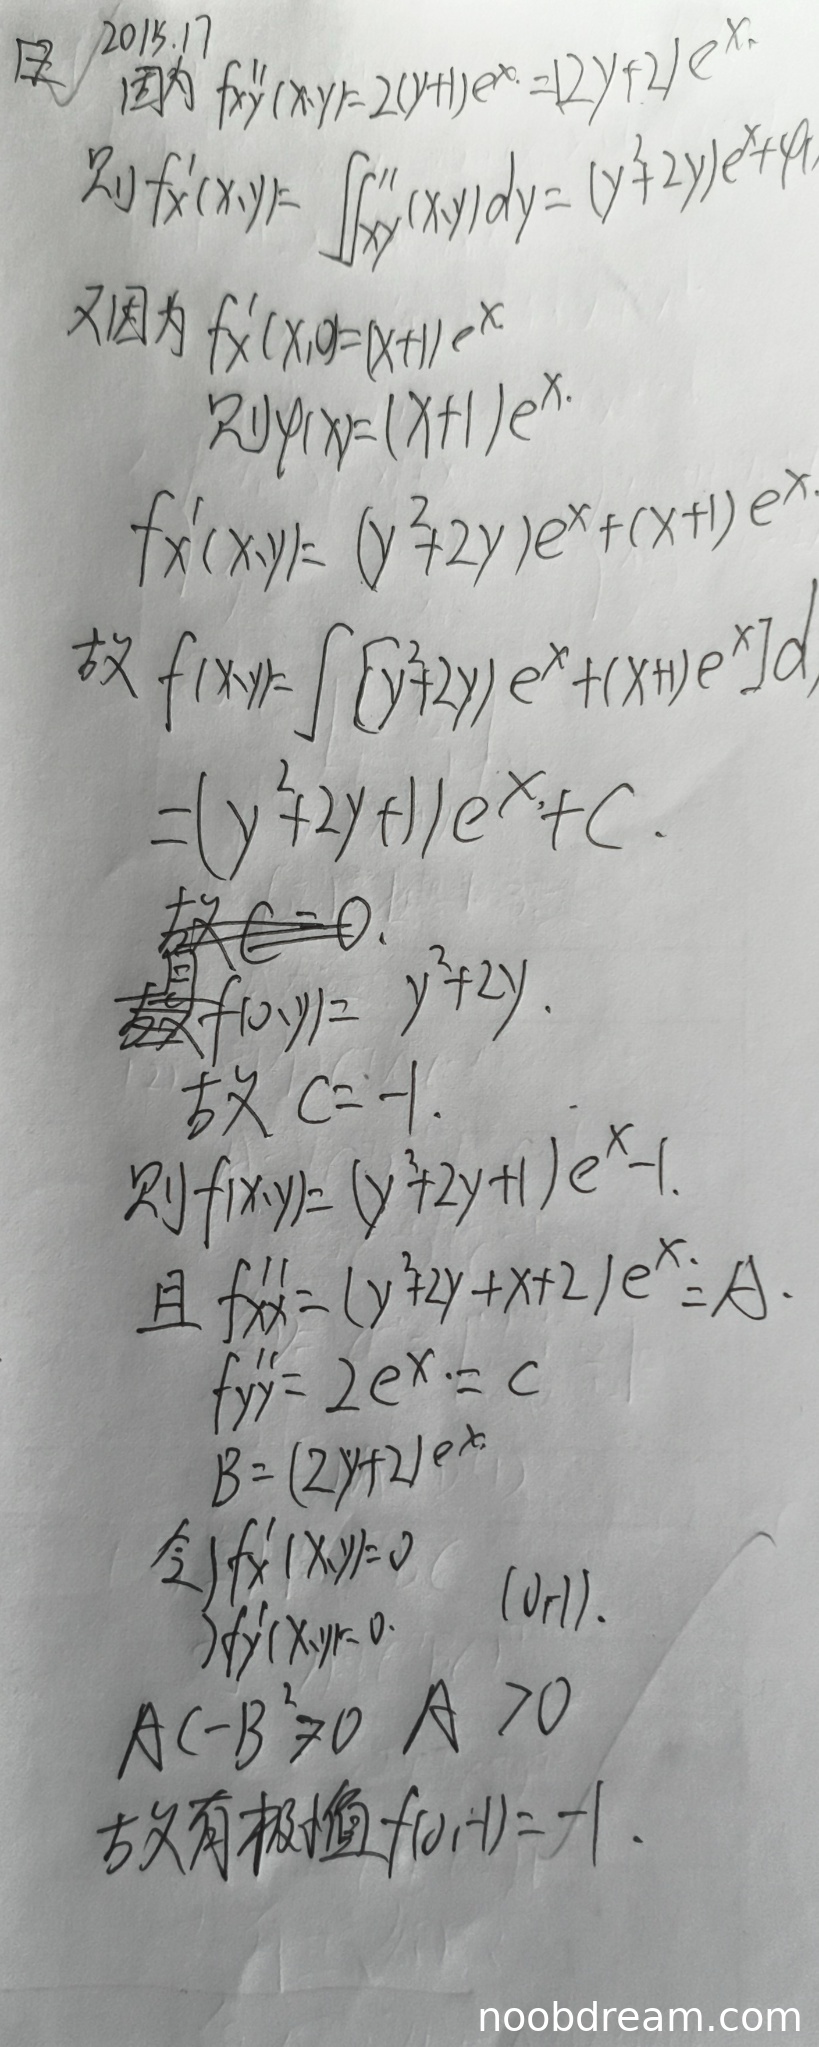 2015.17
因为 f''xy(x,y)=2(y+1)e^x.=(2y+2)e^x.
则 f'x(x,y)= ∫f''xy(x,y)dy=(y²+2y)e^x+φ(
又因为 f'x(x,0)=(x+1)e^x
则φ(x)=(x+1)e^x.
f'x(x,y)=(y²+2y)e^x+(x+1)e^x.
故 f(x,y)=∫[(y²+2y)e^x+(x+1)e^x]d
=(y²+2y+1)e^x+C.
故C=0.
且 f(0,y)= y²+2y.
故 C=-1.
则f(x,y)=(y²+2y+1)e^x-1.
且 f''xx=(y²+2y+x+2)e^x.=A.
f''yy=2e^x.=C
B=(2y+2)e^x.
令{f'x(x,y)=0
{f'y(x,y)=0. (0,-1).
AC-B²>0 A>0
故有极小值f(0,-1)=-1.
noobdream.com